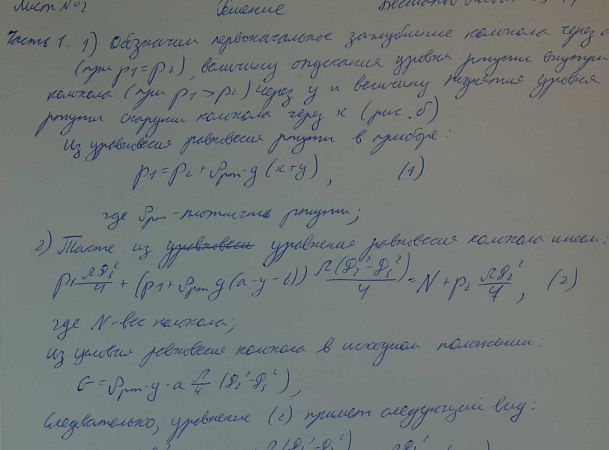 Лист №2 Решение
Часть 1. 1) Обозначим первоначальное заглубление колокола через a
(при p1=p2), величину опускания уровня ртути внутри
колокола (при p1>p2) через y и величину поднятия уровня
ртути снаружи колокола через x (рис. б)
Из уравнения равновесия ртути в приборе:
p1=p2+ρрт·g(x+y), (1)
где ρрт-плотность ртути;
2) Также из уравнения равновесия колокола имеем:
p1 πD1²/4 + (p1+ρрт g(a-y-l)) π(D2²-D1²)/4 = N+p2 πD2²/4, (2)
где N-вес колокола;
Из условия равновесия колокола в исходном положении:
G=ρрт·g·a π/4 (D2²-D1²);
Следовательно, уравнение (2) примет следующий вид: